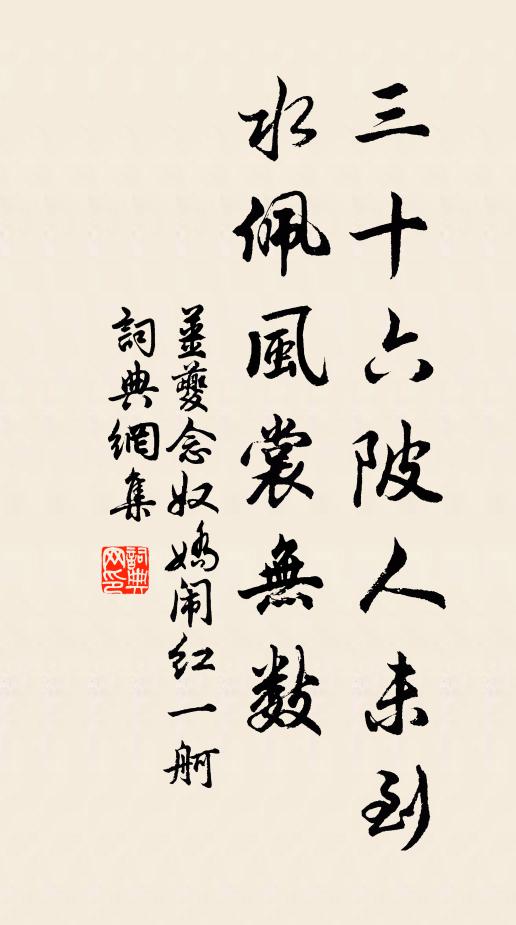 三十六陂人未到
水佩風裳無數
姜夔念奴嬌闹红一舸
詞典網集
詞典网印